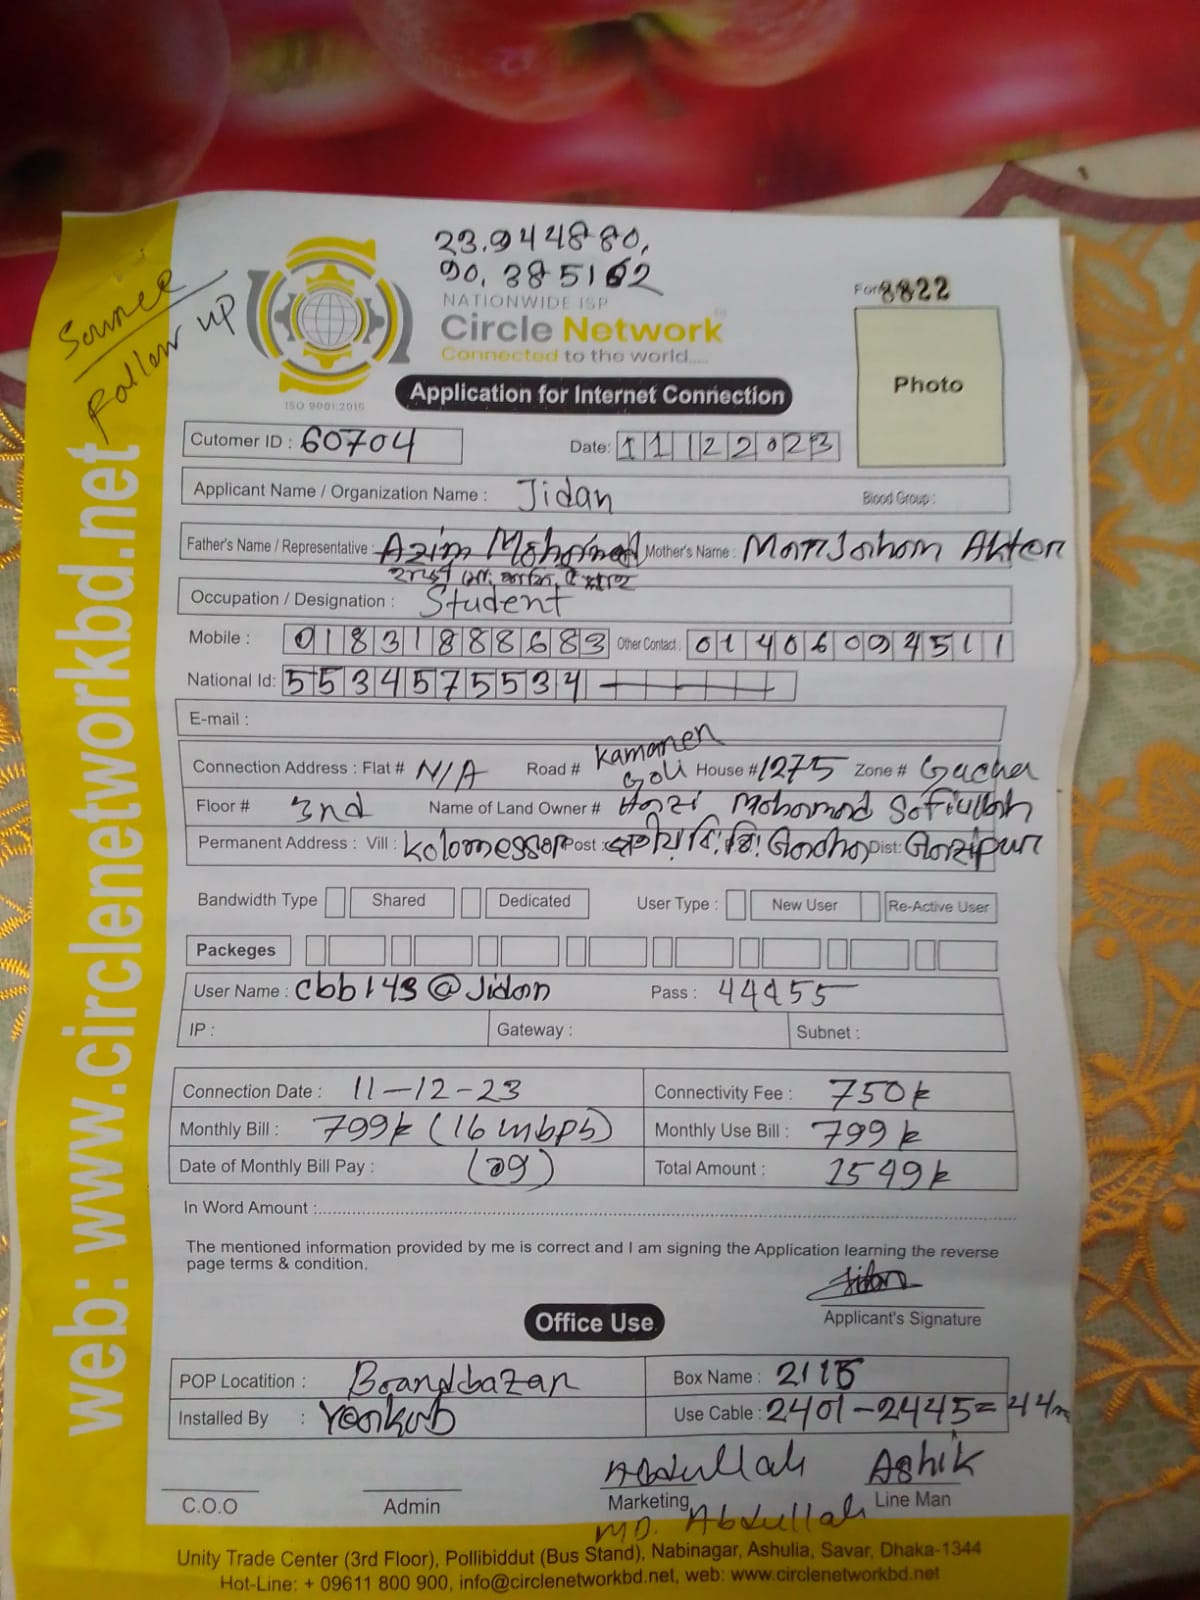 23.944880,
90.385162
Source
Follow up
NATIONWIDE ISP
Circle Network
Connected to the world.....
ISO 9001:2015
8822
Photo
Application for Internet Connection
Cutomer ID : 60704 Date: 11122023
Applicant Name / Organization Name : Jidan Blood Group :
Father's Name / Representative : Azim Mohormad Mother's Name : Akter
Occupation / Designation : Student
Mobile : 01831888683 Other Contact : 01406094511
National Id: 5534575534
E-mail :
Connection Address : Flat # N/A Road # Kamaren Goli House # 1275 Zone # Gacha
Floor # 3nd Name of Land Owner # Mohomod Sofiullah
Permanent Address : Vill : Post : Dist:
Bandwidth Type Shared Dedicated User Type : New User Re-Active User
Packeges
User Name : cbb143@Jidan Pass : 44455
IP : Gateway : Subnet :
Connection Date : 11-12-23 Connectivity Fee : 750k
Monthly Bill : 799k (16 mbps) Monthly Use Bill : 799k
Date of Monthly Bill Pay : Total Amount : 1549k
In Word Amount :
The mentioned information provided by me is correct and I am signing the Application learning the reverse
page terms & condition.
Jidan
Applicant's Signature
Office Use
POP Locatition : Boardbazar Box Name :
Installed By : Use Cable : 2401-2445=44m
Abdullah Ashik
C.O.O Admin Marketing Line Man
MD. Abdullah
Unity Trade Center (3rd Floor), Pollibiddut (Bus Stand), Nabinagar, Ashulia, Savar, Dhaka-1344
Hot-Line: + 09611 800 900, info@circlenetworkbd.net, web: www.circlenetworkbd.net
web: www.circlenetworkbd.net